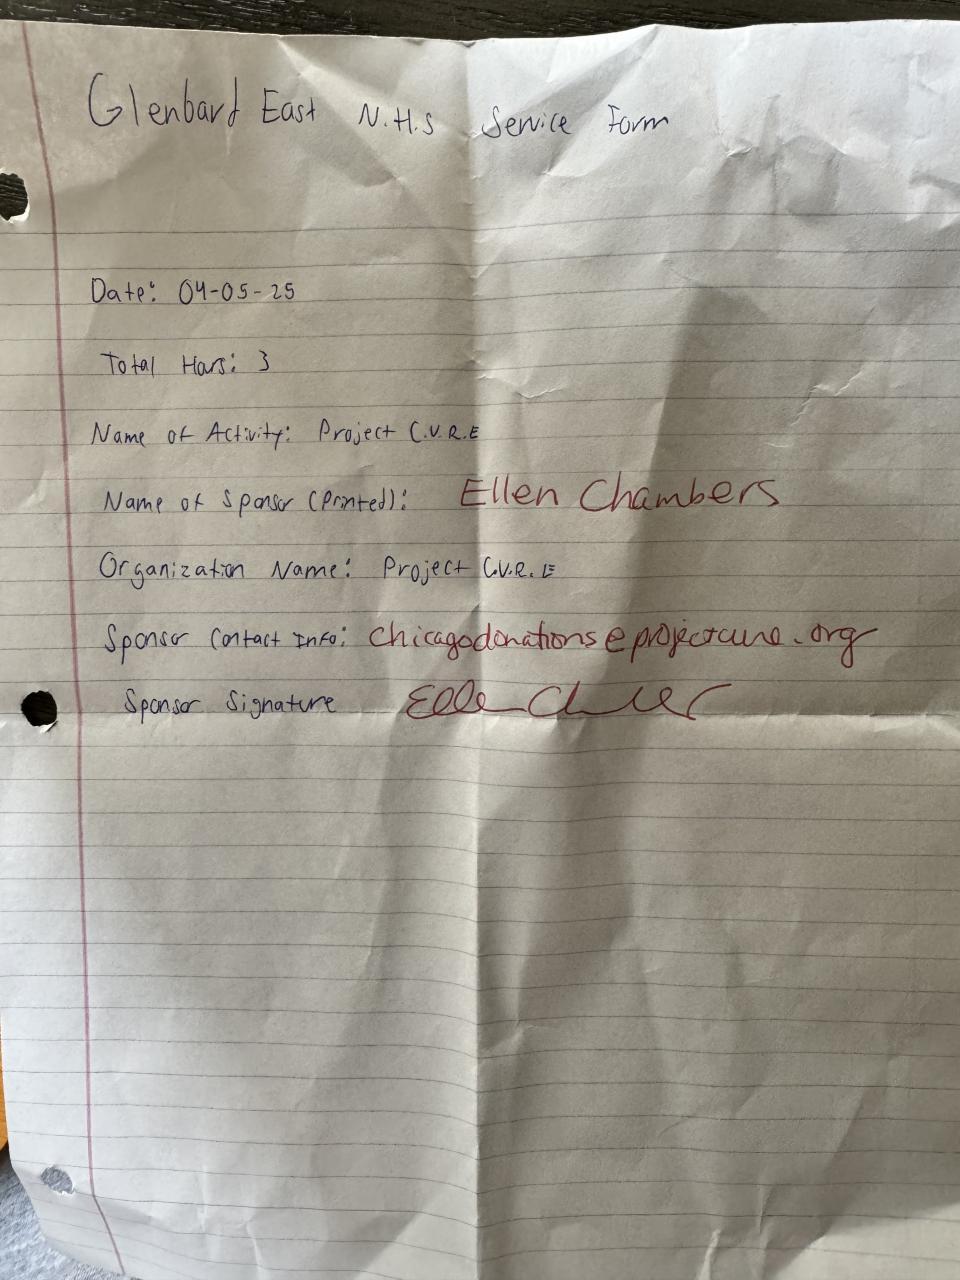 Glenbard East N.H.S Service Form
Date: 04-05-25
Total Hours: 3
Name of Activity: Project C.U.R.E
Name of Sponsor (Printed): Ellen Chambers
Organization Name: Project C.U.R.E
Sponsor Contact Info: chicagodonations@projectcure.org
Sponsor Signature Ellen Chambers